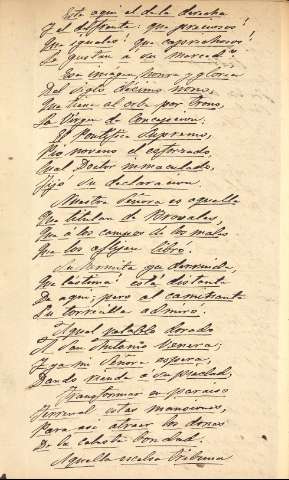 Este aqui el de la derecha!
Y el del frente: que preciosos!
Que iguales! que caprichosos!
Le gustan a su merced?
Esa imagen, honra y gloria
Del Siglo décimo nono,
Que tiene al orbe por trono,
La Virgen de Concepcion.
El Pontifice Supremo,
Pio noveno el esforzado
Cual Doctor inmaculado,
Hizo su declaracion.
Nuestra Señora es aquella
Que titulan de Rosales,
Que á los campos de los males
Que los afligen libró.
La hermita ya derruida,
Que lastima! está distante
De aqui; pero al caminante
Su torrecilla admiró.
Aquel retablo dorado
A San Antonio venera;
Y ya mi Señora espera,
Dando rienda a su piedad,
Transformar en paraiso
Terrenal estas mansiones,
Para asi atraer los dones
De la celeste bondad.
Aquella escelsa Tribuna